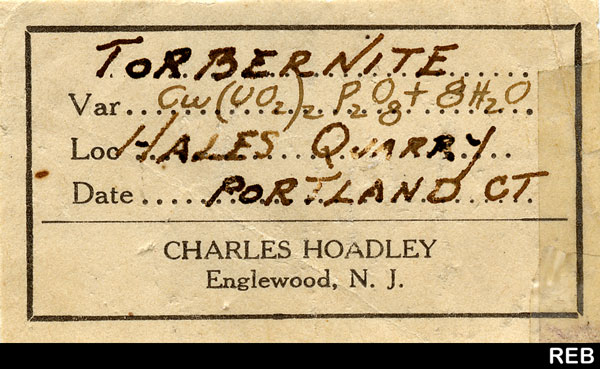 TORBERNITE
Var... Cu(UO2)2 P2O8 + 8H2O
Loc HALES QUARRY
Date..... PORTLAND CT.
CHARLES HOADLEY
Englewood, N. J.
REB